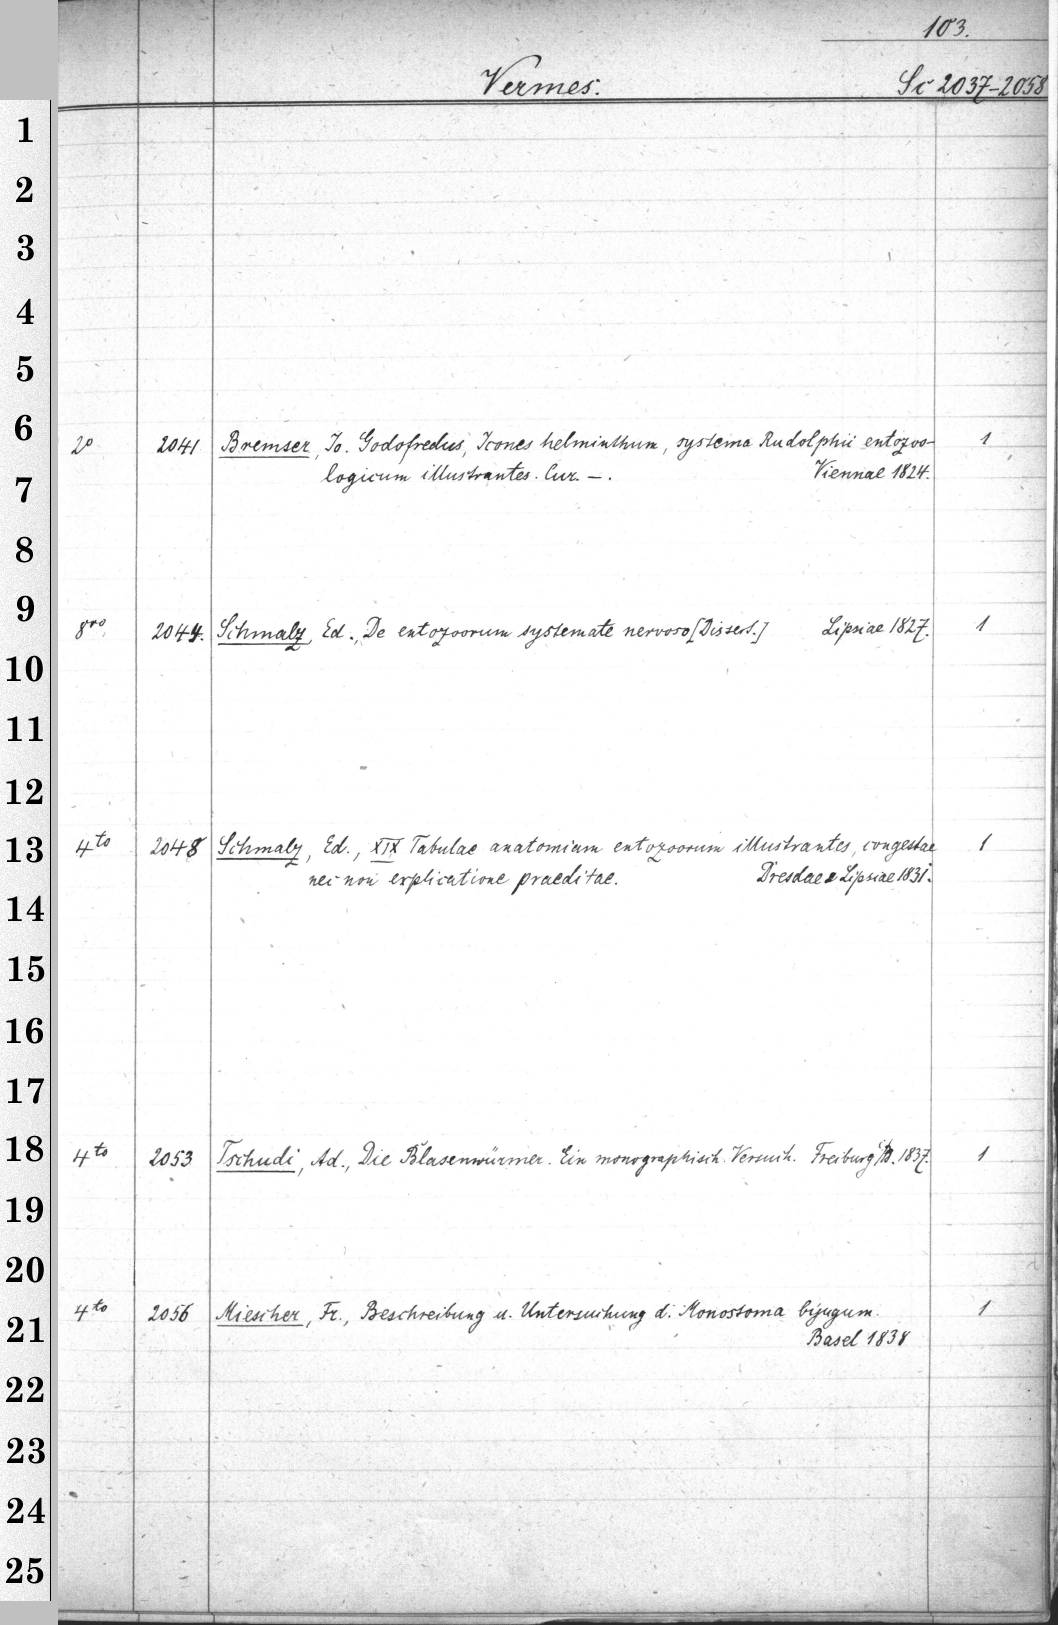 103.
Vermes.
Sc 2037-2058
1
2
3
4
5
6
2° 2041 Bremser, Jo. Godofredus, Icones helminthum, systema Rudolphii entozoo- 1
7
logicum illustrantes. Cur. —. Viennae 1824.
8
9
8vo, 2044. Schmalz, Ed., De entozoorum systemate nervoso [Dissert.] Lipsiae 1827. 1
10
11
12
13
4to 2048 Schmalz, Ed., XIX Tabulae anatomiam entozoorum illustrantes, congestae 1
nec non explicatione praeditae. Dresdae & Lipsiae 1831.
14
15
16
17
18
4to 2053 Tschudi, Ad., Die Blasenwürmer. Ein monographisch. Versuch. Freiburg i/B. 1837. 1
19
20
4to 2056 Miescher, Fr., Beschreibung u. Untersuchung d. Monostoma bijugum. 1
21
Basel 1838
22
23
24
25